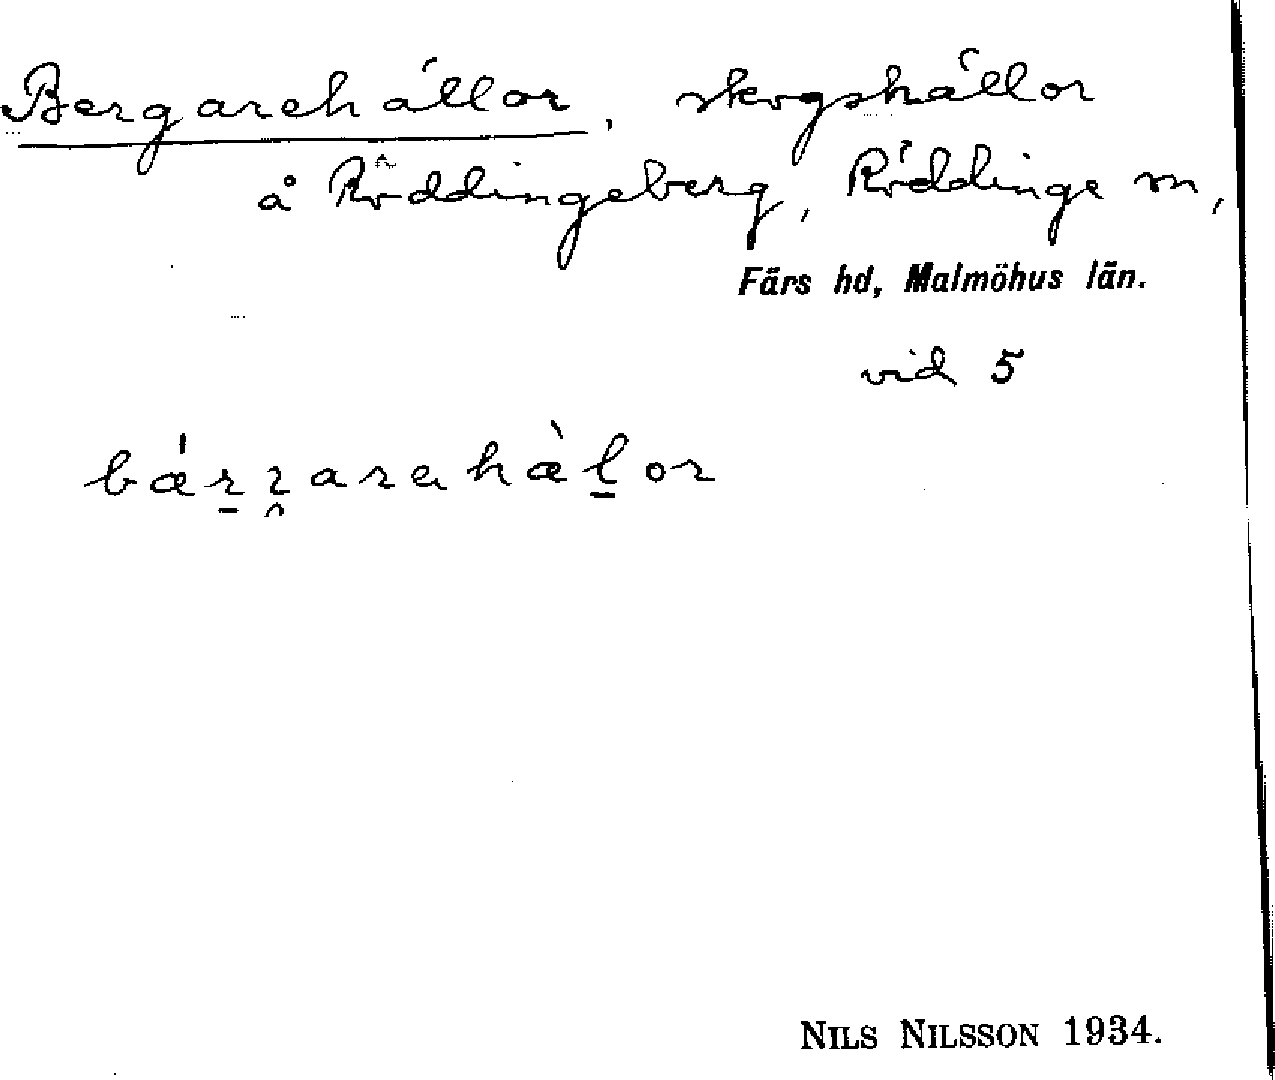 Bergarehällor, skogshällor
å Röddingeberg, Röddinge sn,
Färs hd, Malmöhus län.
vid 5
bǽr̠r̭arahæ̀l̠or
NILS NILSSON 1934.